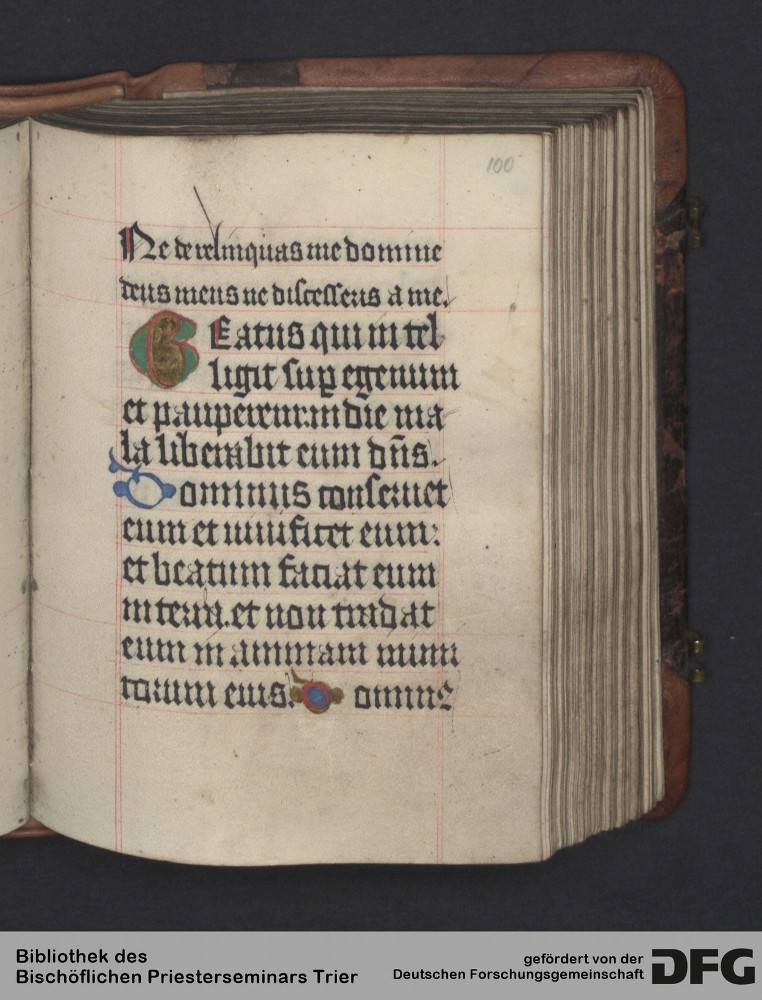 100
Ne derelinquas me domine
deus meus ne discesseris a me.
BEatus qui intel
ligit sup egenum
et pauperem: in die ma
la liberabit eum dñs.
Dominus conseruet
eum et uiuificet eum:
et beatum faciat eum
in terra. et non tradat
eum in animam inimi
corum eius. Dominus
Bibliothek des
Bischöflichen Priesterseminars Trier
gefördert von der
Deutschen Forschungsgemeinschaft
DFG